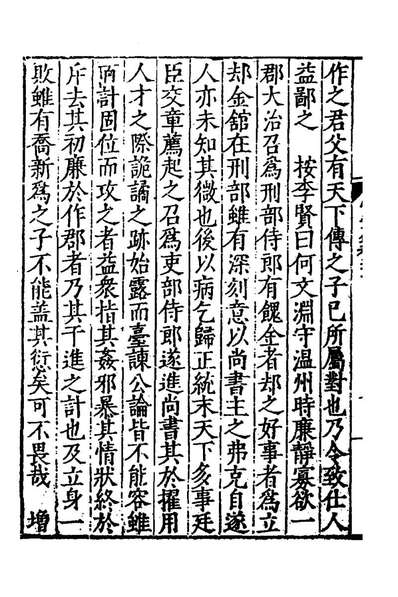 作之君父有天下傳之子已所屬對也乃令致仕人
益鄙之　按李賢曰何文淵守温州時廉靜寡欲一
郡大治召爲刑部侍郎有餽金者却之好事者爲立
却金舘在刑部雖有深刻意以尚書主之弗克自遂
人亦未知其微也後以病乞歸正統末天下多事廷
臣交章薦起之召爲吏部侍郎遂進尚書其於擢用
人才之際詭譎之跡始露而臺諫公論皆不能容雖
兩計固位而攻之者益衆指其姦邪暴其情狀終於
斥去其初廉於作郡者乃其干進之計也及立身一
敗雖有喬新爲之子不能盖其愆矣可不畏哉　增